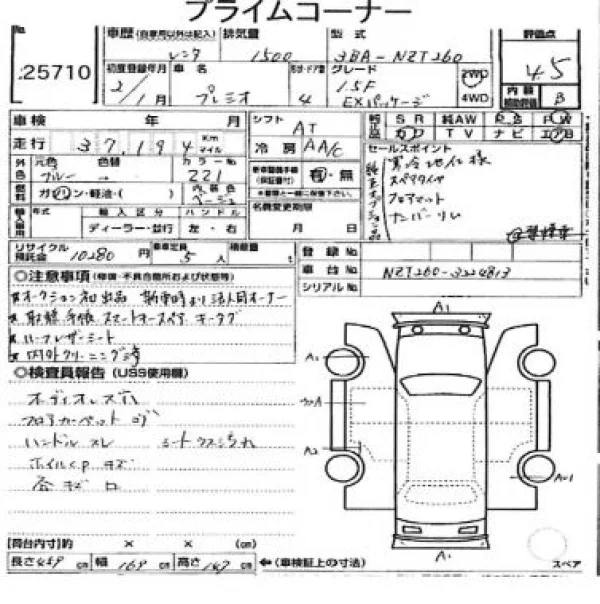 プライムコーナー
No. 25710
車歴 (自家用以外は記入) レンタ
排気量 1500
型式 3BA-NZT260
評価点 4.5
初度登録年月 2/1月
車名 プレミオ
ドア数 4
グレード 1.5F EXパッケージ
2WD 4WD
内装補助評価 B
車検 年 月
シフト AT
走行 37,194 Km マイル
冷房 AA/C
純正品 SR 純AW PS PW
カワ TV ナビ エアB
外色 元色 ブルー 色替 →
カラーNo. 221
内装色 ベージュ
燃料 ガソリン・軽油・( )
有・無
※車検と一緒に保管下さい。
セールスポイント
寒冷地仕様
スペアタイヤ
フロアマット
ナンバーリム
名義変更期限 月 日
輸入車用 年式 輸入区分 ディーラー・並行 ハンドル 左・右
リサイクル預託金 10280円
乗車定員 5人
積載量 t
登録No.
車台No. NZT260-3224813
シリアルNo.
◎注意事項 (修復・不具合箇所および状態等)
★オークション初出品 新車時より法人同オーナー
★取説 手帳 スマートキースペア キータグ
★ハーフレザーシート
★内外クリーニング済
◎検査員報告 (USS使用欄)
オーディオレス穴
フロアカーペット ヨゴ
ハンドル スレ シートウス汚れ
ホイルcap キズ
各キズ凹
A1
A1
A2
A1
(荷台内寸)約 × × (cm)
長さ459 幅169 高さ147 cm
←(車検証上の寸法)
スペア